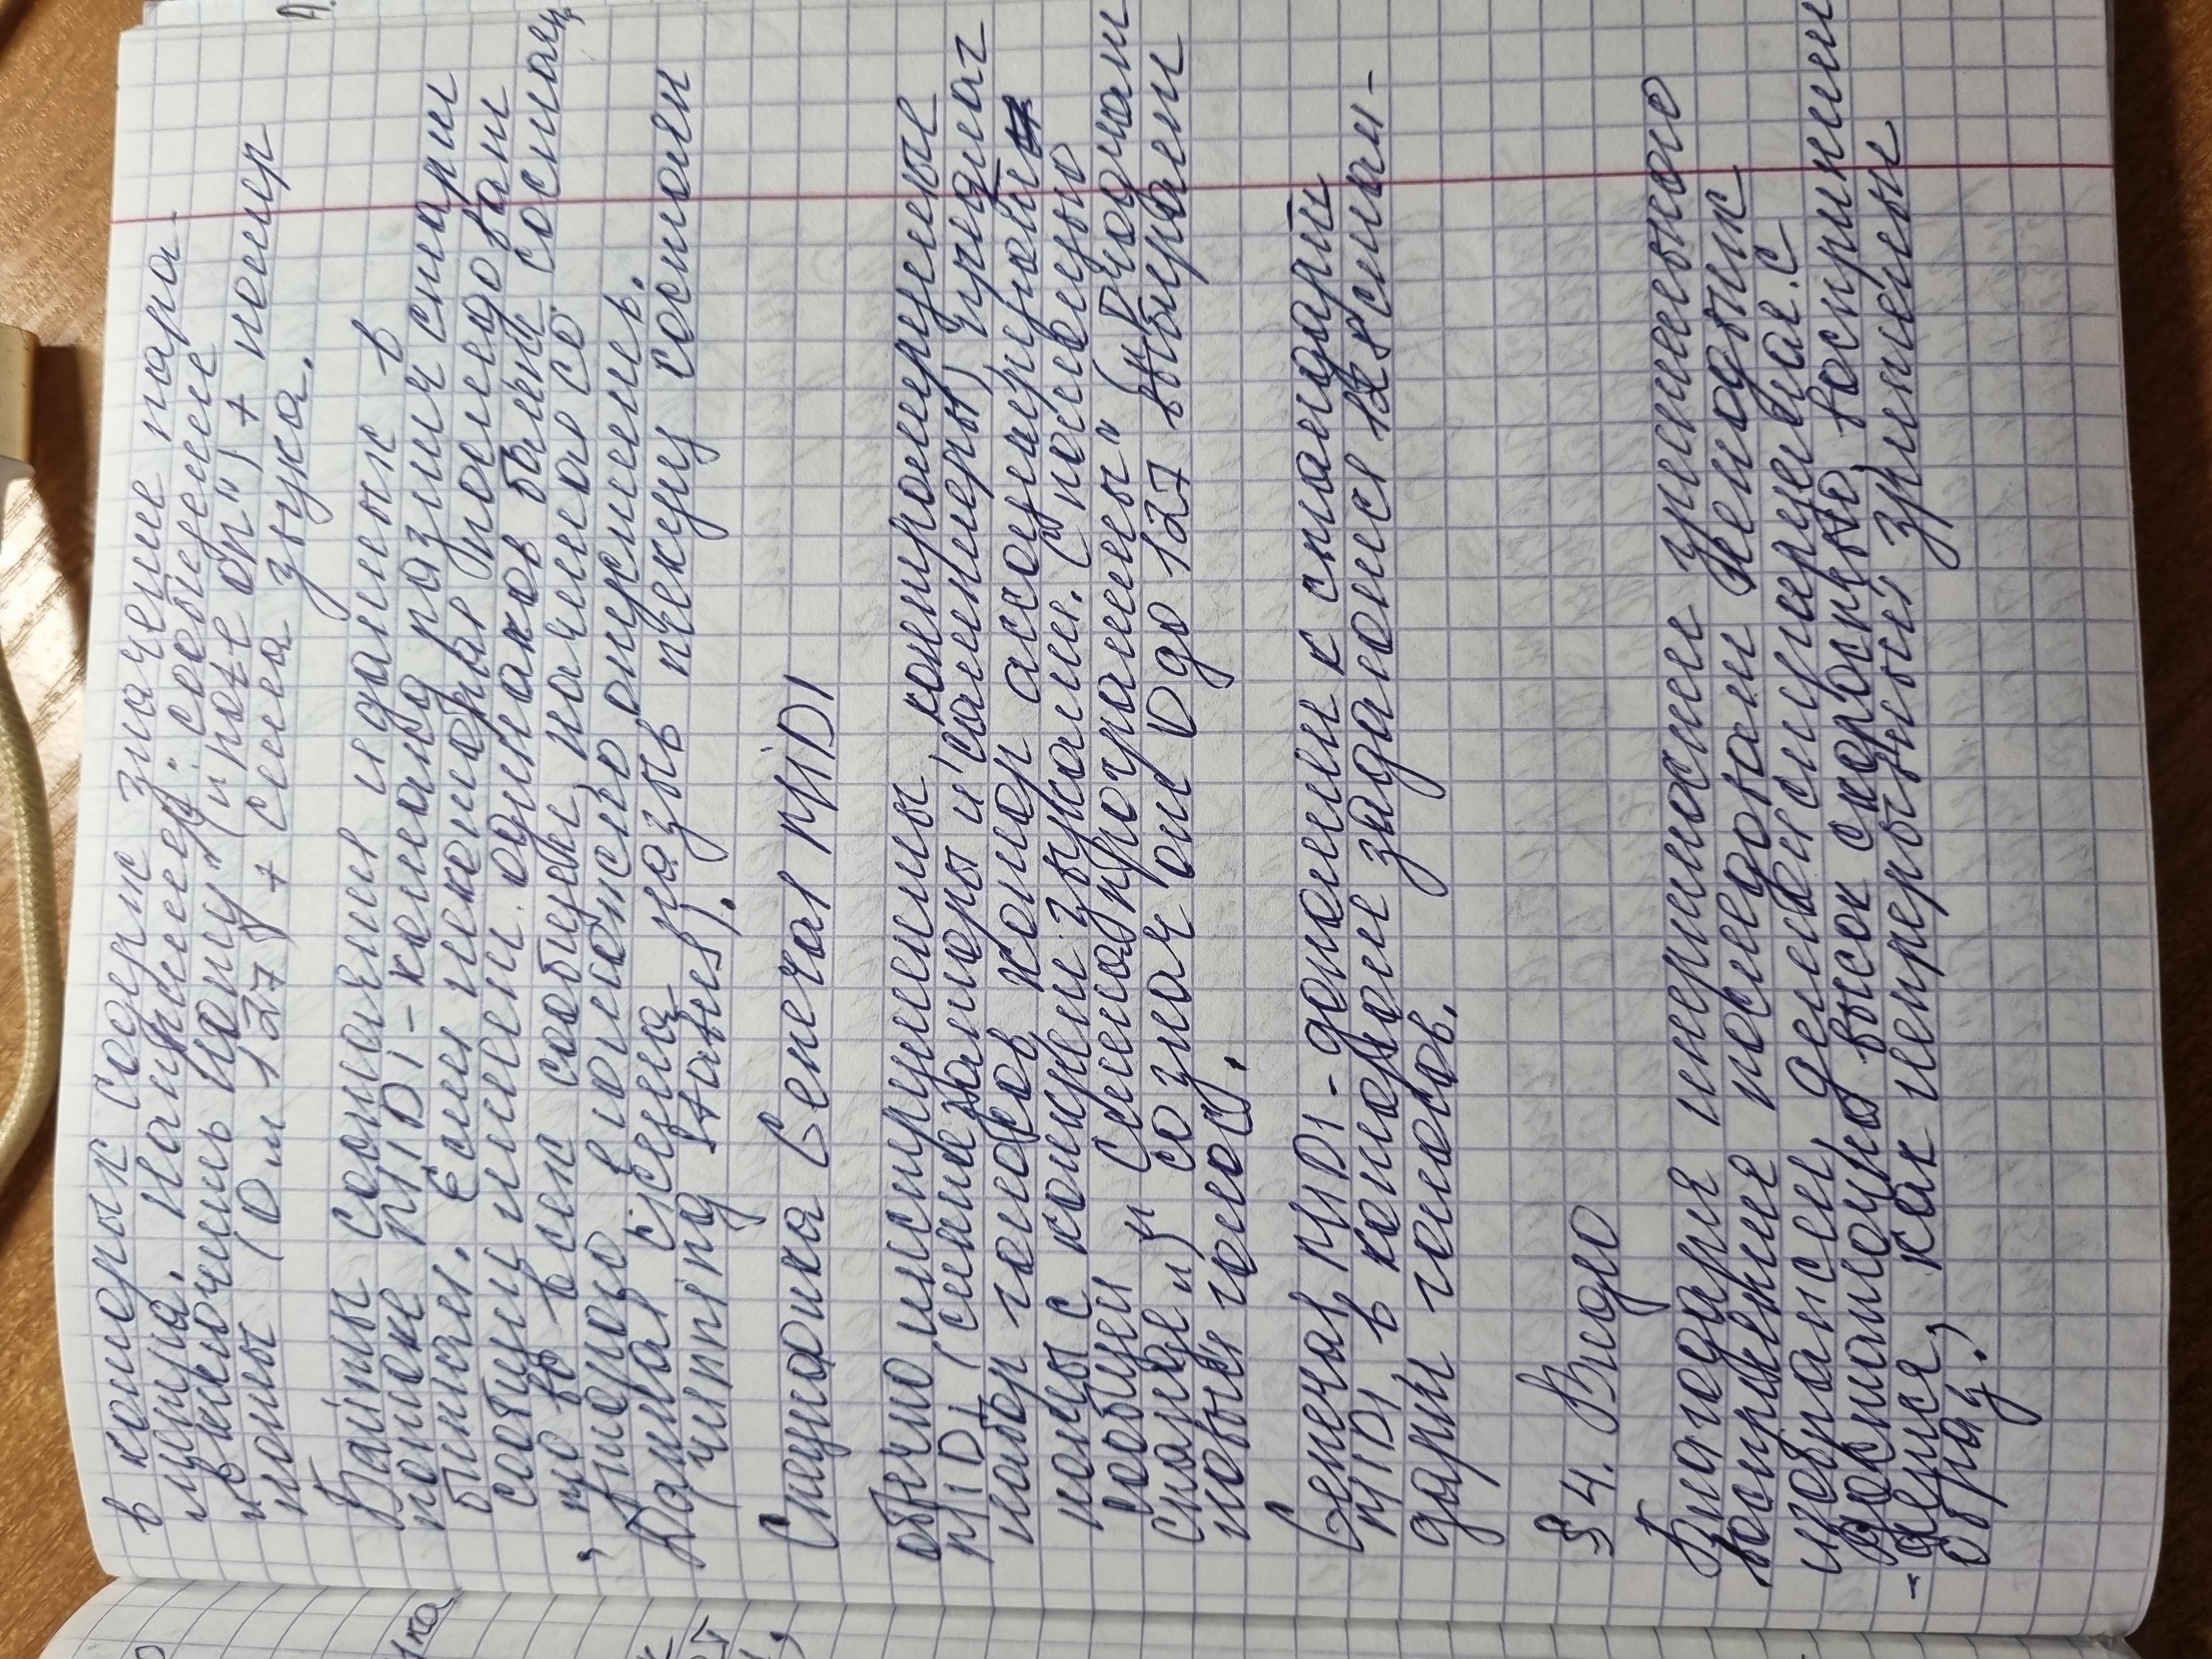 в которых содерж значение пара-
метра. Например: сообщение
„включить ноту" („note on") + номер
ноты (0 и 127) + сила звука.
Байты состояния и данных в
потоке MIDI-команд различ старш
битом. Если некоторая последоват
сообщен имеет одинаков байт состоян,
то во всех сообщен, начиная со
второго, его можно опустить.
Данная схема назыв текущ состоян
(running status).
Специфика General MIDI
обычно инструменты, контролируемые
MIDI (синтезаторы и сэмплеры), предлаг
набор голосов, котор ассоциируют
ноты с конкрет звуками. С помощью
сообщен „Смена программы" („program
change„) со знач от 0 до 127 выбирает
новый голос.
General MIDI - дополнен к стандарт
MIDI, в котором задаются 128 стан-
дарт голосов.
§ 4. Видео
Благодаря инертности зрительного
восприятия последоват неподвиж
изображен, демонстрируемая с
достаточно высок скоростью, восприним
-ается, как непрерывный зрительн
образ.